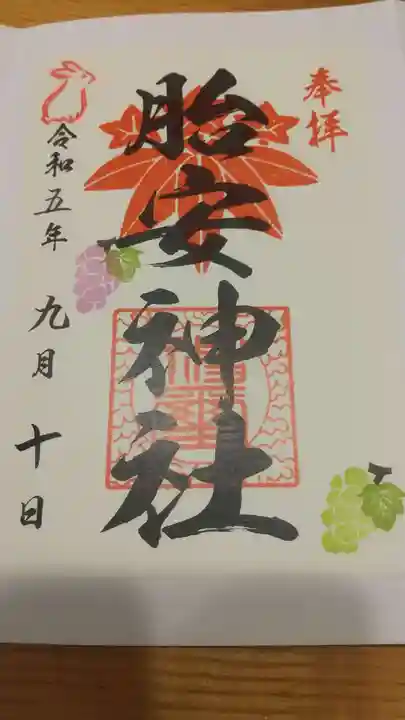 奉拝
胎安神社
令和五年 九月 十日